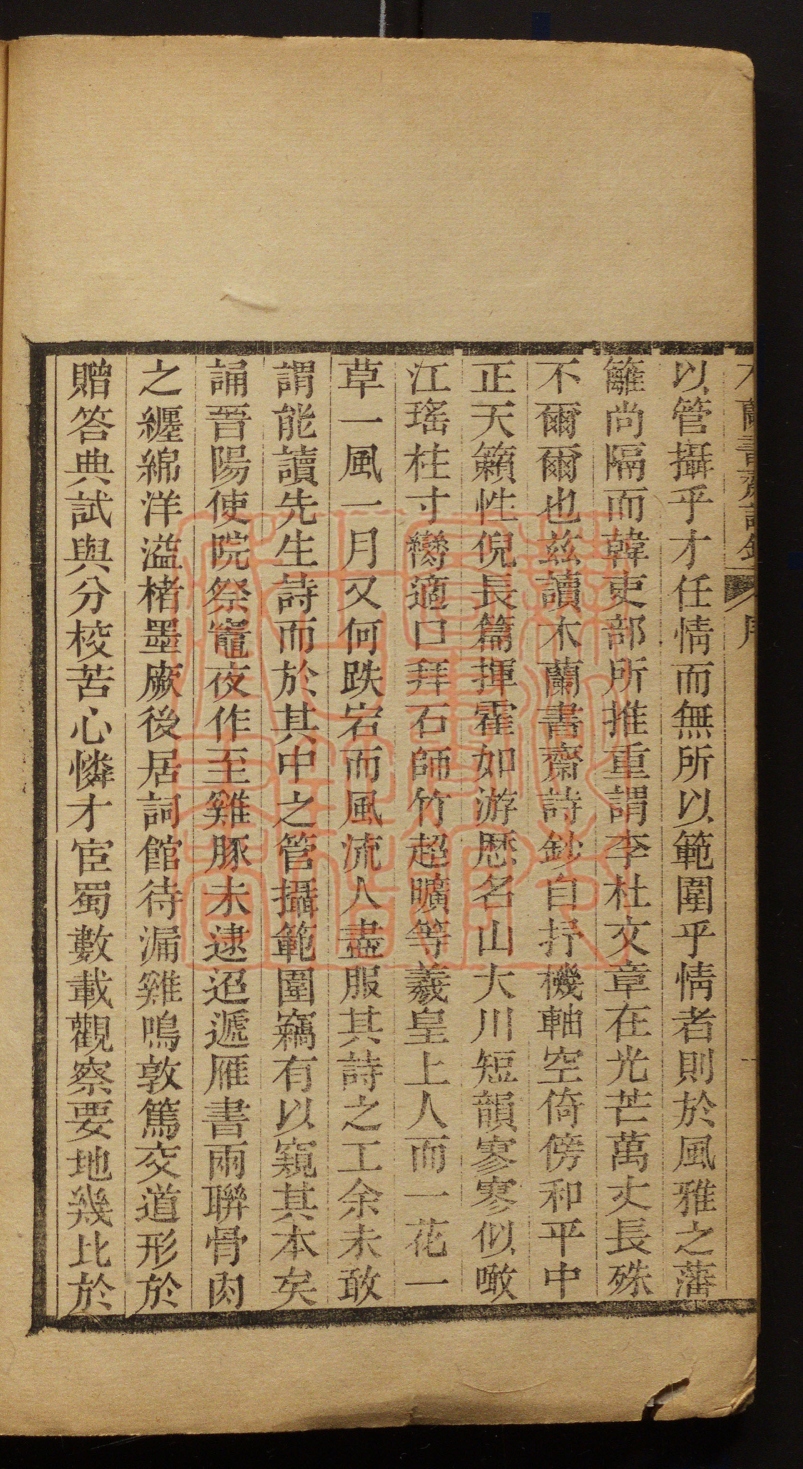 木蘭書齋詩鈔 序
以管攝乎才任情而無所以範圍乎情者則於風雅之藩
籬尚隔而韓吏部所推重謂李杜文章在光芒萬丈長殊
不爾爾也茲讀木蘭書齋詩鈔自抒機軸空倚傍和平中
正天籟性倪長篇揮霍如游歷名山大川短韻寥寥似噉
江瑤柱寸臠適口拜石師竹超曠等羲皇上人而一花一
草一風一月又何跌宕而風流人盡服其詩之工余未敢
謂能讀先生詩而於其中之管攝範圍竊有以窺其本矣
誦晉陽使院祭竈夜作至雞豚未逮迢遞雁書兩聯骨肉
之纏綿洋溢楮墨厥後居詞館待漏雞鳴敦篤交道形於
贈答典試與分校苦心憐才宦蜀數載觀察要地幾比於